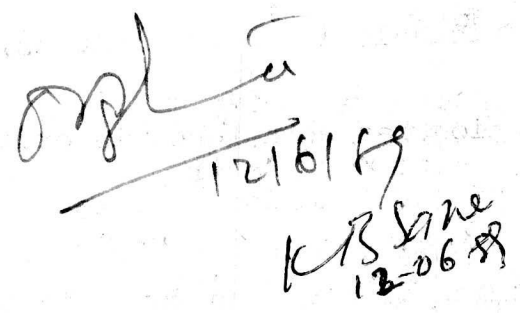 12/6/89
K B Sane
12-06 89